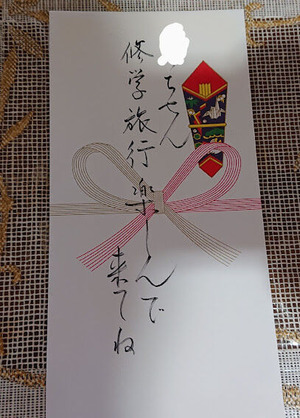 ちゃん
修学旅行楽しんで
来てね